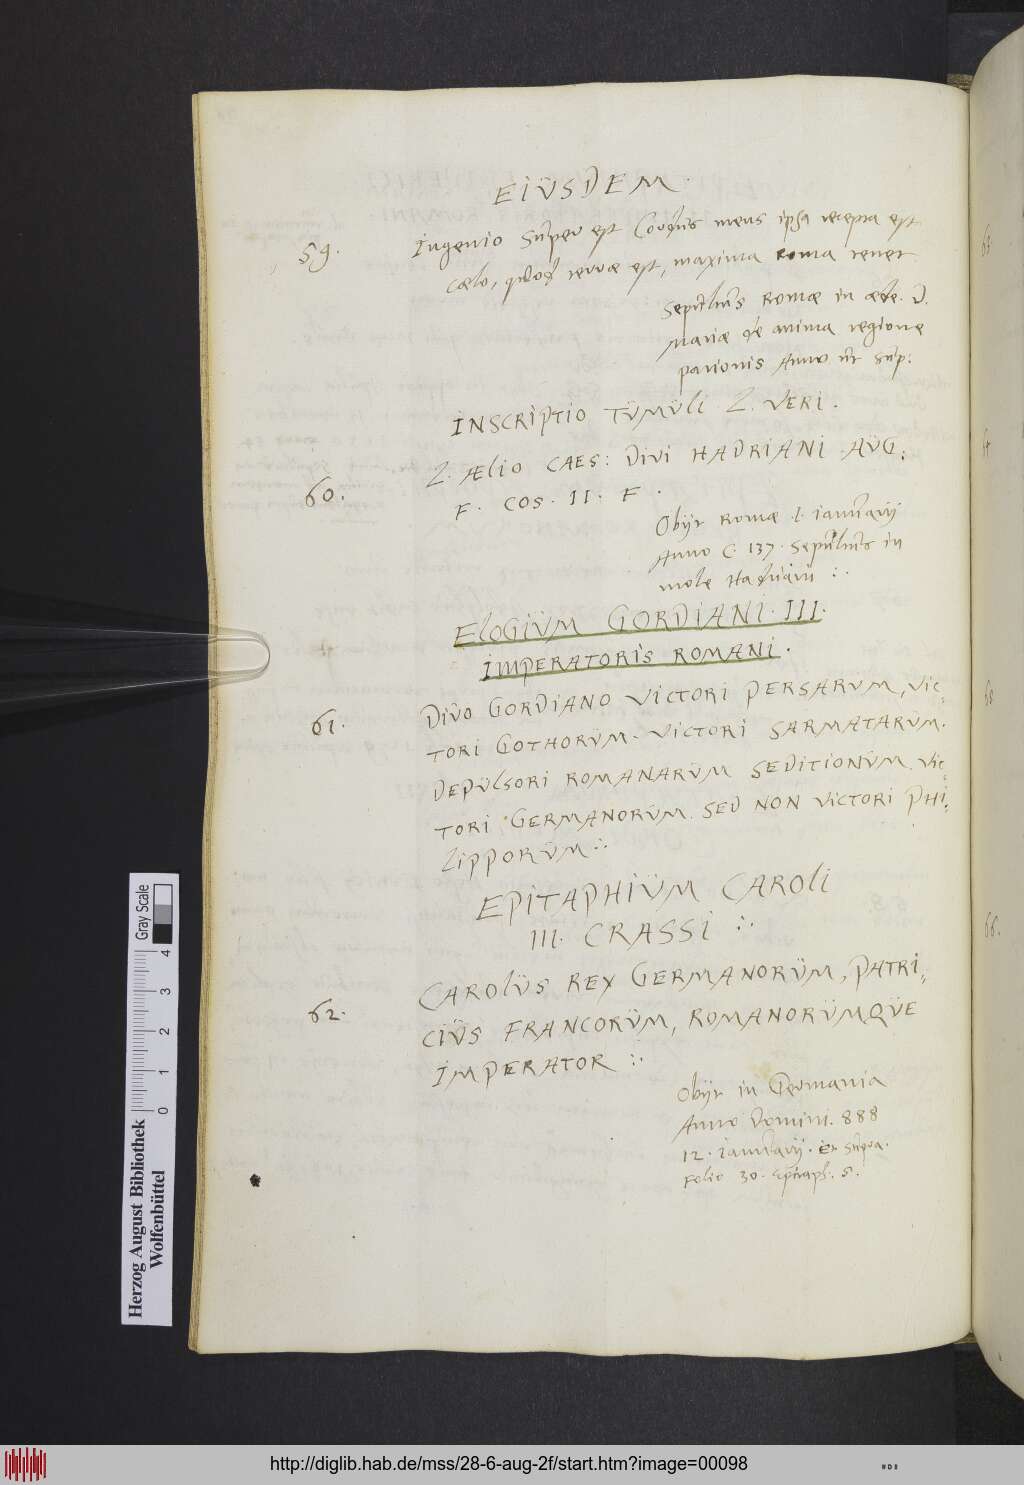 EIÜSDEM.
59. Ingenio super est Corpus meus ipsa recepta est
cælo, quod terræ est, maxima Roma tenet.
Sepultus Romæ in æde. D.
Mariæ de anima regione
parionis Anno ut sup:
INSCRIPTIO TÜMÜLI L. VERI.
60. L. ÆLIO CAES: DIVI HADRIANI AÜG:
F. COS. II. F.
Obijt Romæ I. Januarij
Anno C. 137. Sepultus in
mole Hadriani ∴
ELOGIÜM GORDIANI. III.
IMPERATORIS ROMANI.
61. DIVO GORDIANO VICTORI PERSARÜM, VIC¬
TORI GOTHORÜM. VICTORI SARMATARÜM.
DEPÜLSORI ROMANARÜM SEDITIONÜM. VIC¬
TORI GERMANORÜM. SED NON VICTORI PHI¬
LIPPORÜM ∴
EPITAPHIÜM CAROLI
III. CRASSI ∴
62. CAROLÜS REX GERMANORÜM, PATRI¬
CIÜS FRANCORÜM, ROMANORÜMQÜE
IMPERATOR ∴
Obijt in Germania
Anno Domini. 888
12. Januarij. Et supra.
Folio 30. Epitaph: 5.
63.
64
65
66.
Herzog August Bibliothek
Wolfenbüttel
0 1 2 3 4
Gray Scale
http://diglib.hab.de/mss/28-6-aug-2f/start.htm?image=00098